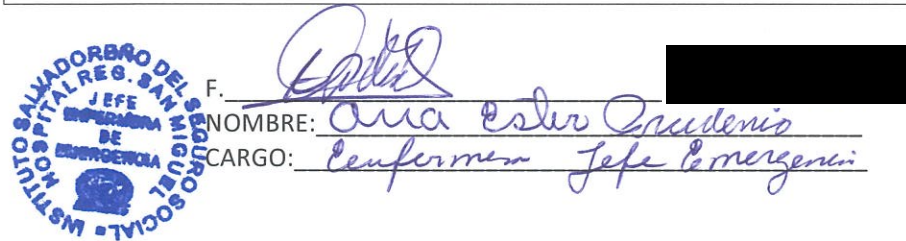 INSTITUTO SALVADOREÑO DEL SEGURO SOCIAL
HOSPITAL REG. SAN MIGUEL
JEFE
ENFERMERA
DE
EMERGENCIA
F.
NOMBRE: Ana Ester
CARGO: Enfermera Jefe Emergencia